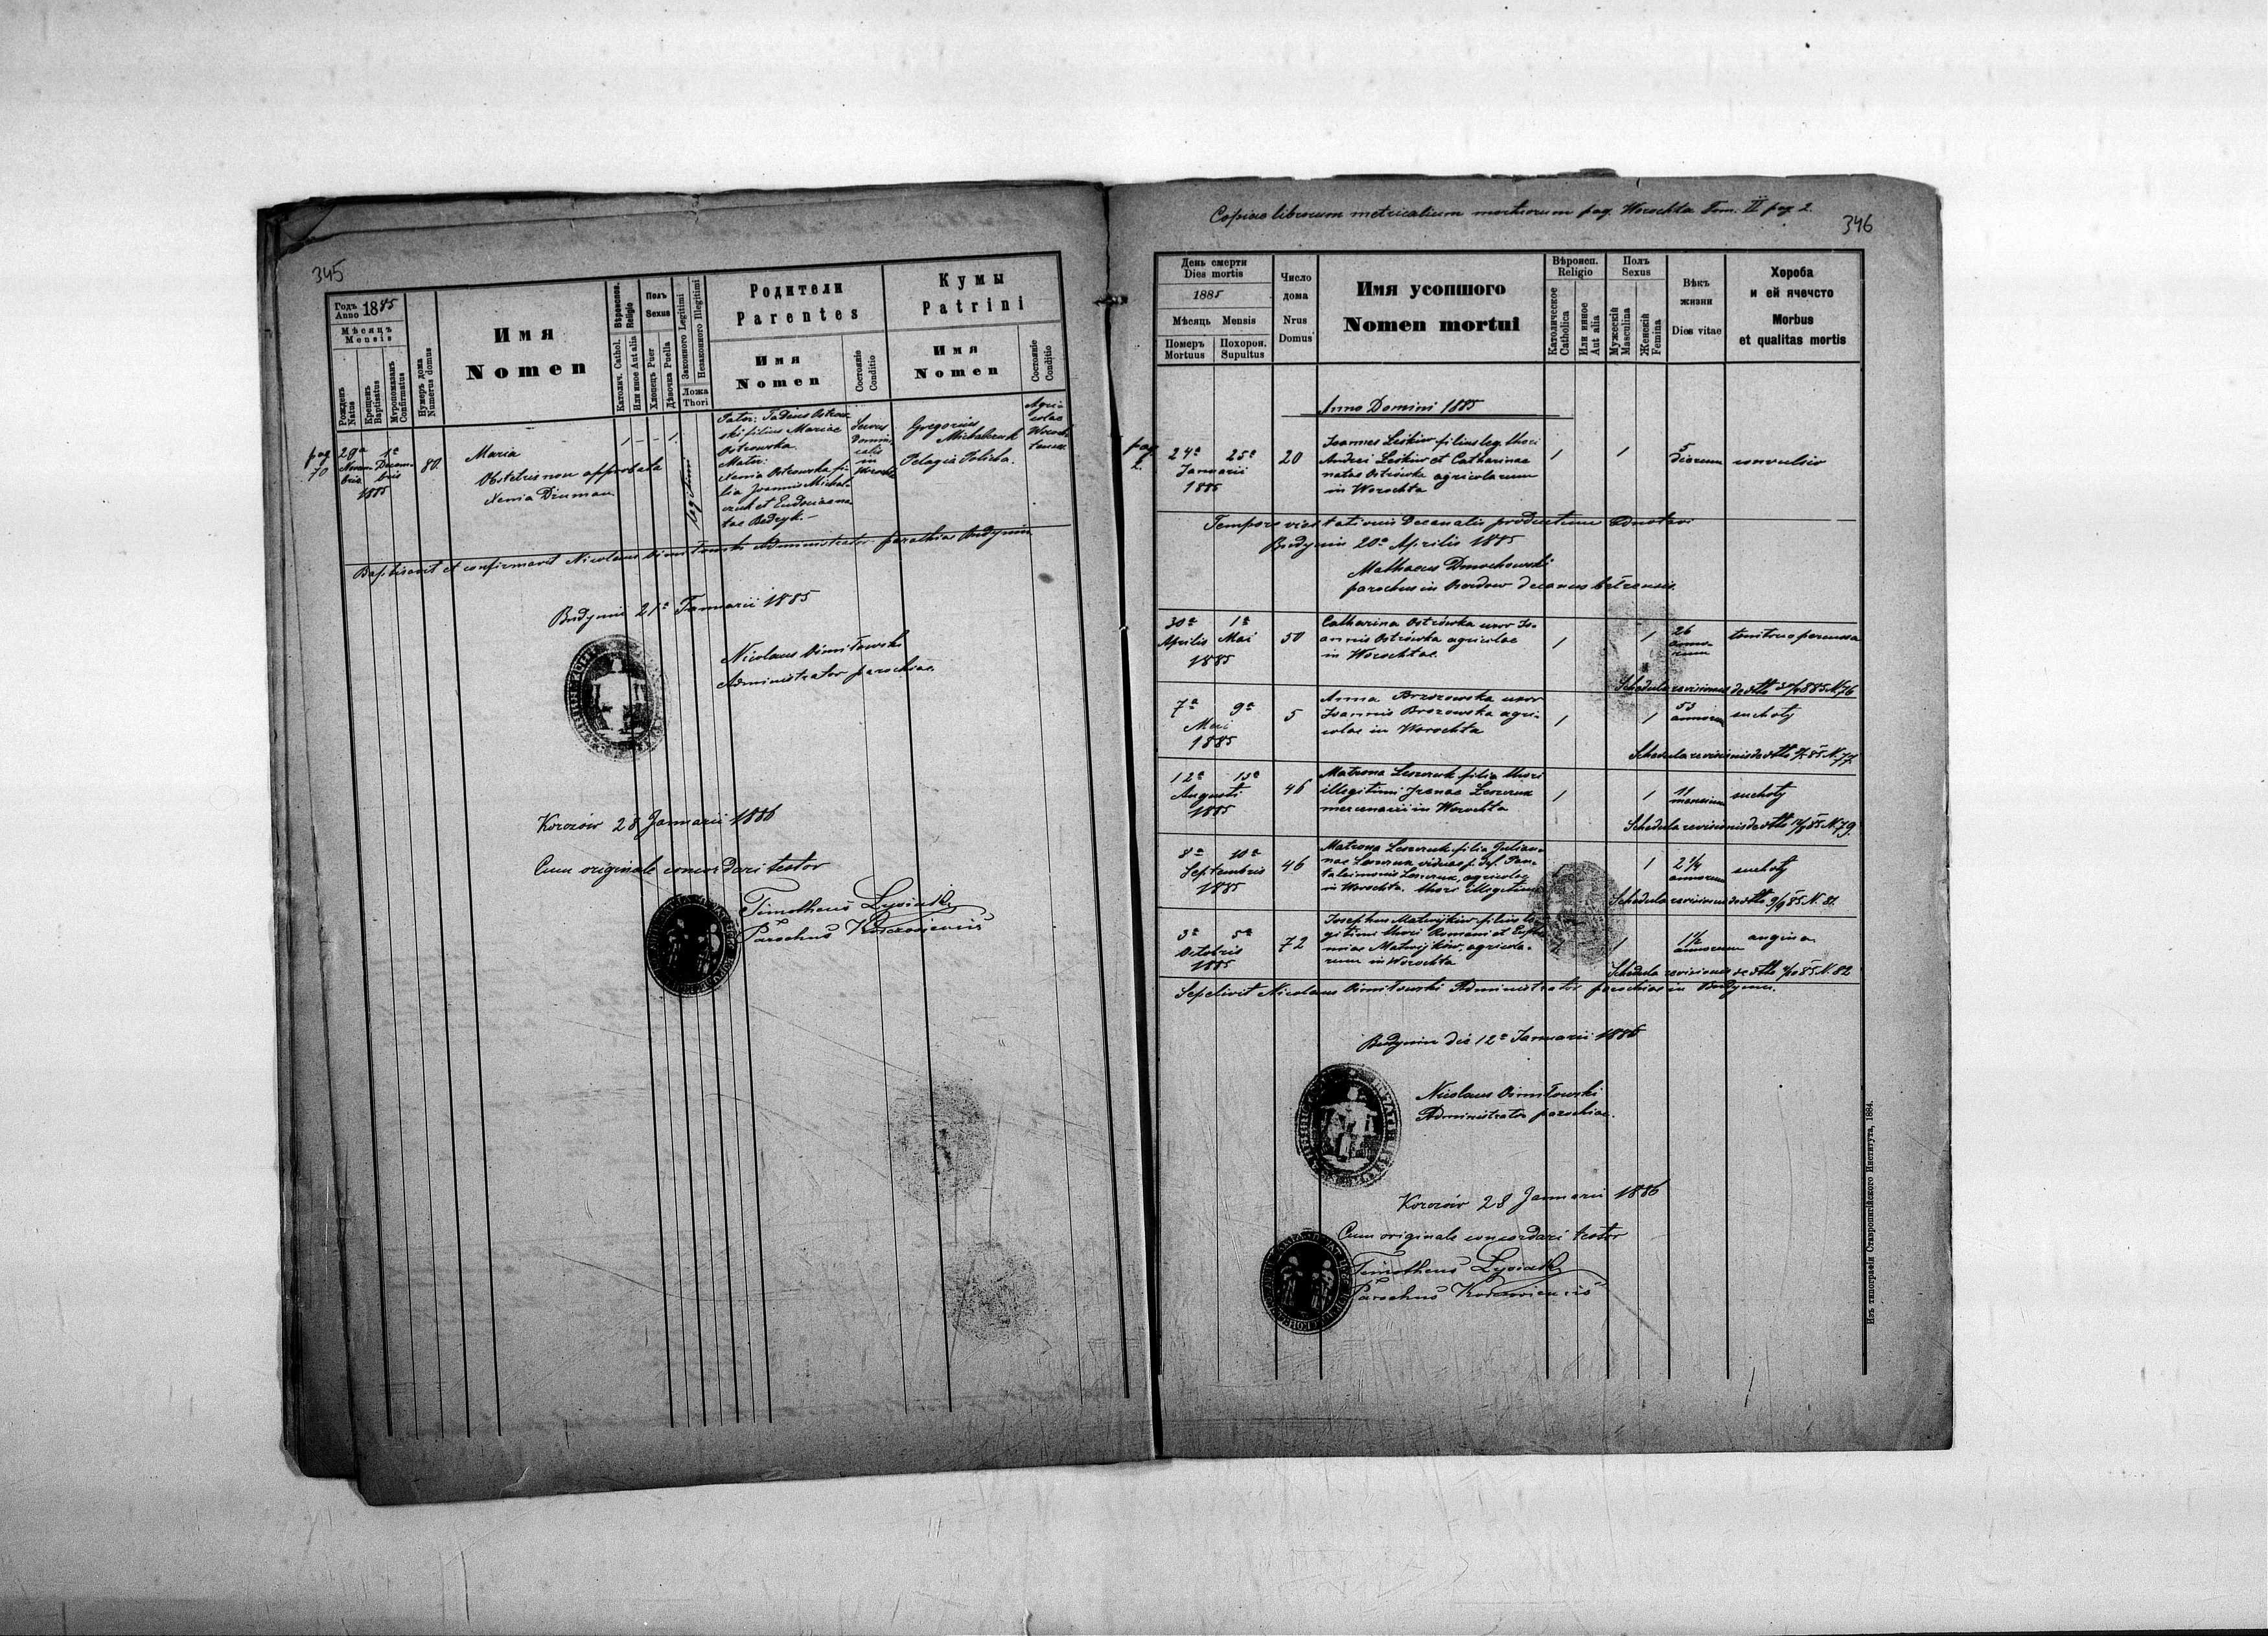 345
Годъ Anno 1885
Мѣсяцъ
Mensis
Рожденъ Natus
Крещенъ Baptisatus
Мѵропомазанъ Confirmatus
Нумеръ дома Numerus domus
Имя
Nomen
Вѣроиспов. Religio
Католич. Cathol.
Или иное Aut alia
Полъ
Sexus
Хлопецъ Puer
Дѣвочка Puella
Законного Legitimi
Незаконного Illegitimi
Ложа
Thori
Родители
Parentes
Имя
Nomen
Состояніе
Conditio
Кумы
Patrini
Имя
Nomen
Состояніе
Conditio
pag 70
29a Novembris
1a Decembris
1885
80.
Maria
Obstetrix non approbata
Xenia Diuman
1 - - 1.
legitimi
Pater: Tadeus Ostrowski filius Mariae
Ostrowska.
Mater:
Xenia Ostrowska filia Joannis Michalczuk et Eudociae natae Bedryk. -
Servus
dominicalis
in
Worochta
Gregorius
Michalczuk
Pelagia
Agricolae
Baptisavit et confirmavit Nicolaus Administrator parochiae Budynin
Budynin 21a Januarii 1885
Nicolaus
Administrator parochiae.
Korczów 28 Januarii 1886
Cum originale concordari testor
Timotheus
Parochus
Copiae librorum metricalium mortuorum pag. Worochta Tom. II pag 2.
346
День смерти
Dies mortis
1885
Мѣсяць Mensis
Померъ
Mortuus
Похорон.
Supultus
Число
дома
Nrus
Domus
Имя усопшого
Nomen mortui
Вѣроисп.
Religio
Католическое
Catholica
Или иное
Aut alia
Полъ
Sexus
Мужескій
Masculina
Женскій
Femina
Вѣкъ
жизни
Dies vitae
Хороба
и ей ячечсто
Morbus
et qualitas mortis
Anno Domini 1885
pag. 2.
24a 25a
Januarii
1885
20
Joannes Leśkiw filius leg. thori
Andrei Leśkiw et Catharinae
natae Ostrówka agricolarum
in Worochta
1 1
5
dierum
convulsio
Tempore visitationis Decanalis productum adnotavi
Budynin 20a Aprilis 1885
Mathaeus
parochus in decanus belzensis.
30a 1a
Aprilis Mai
1885
50
Catharina Ostrówka uxor Joannis Ostrówka agricolae
in Worochtae.
1 1
26
annorum
tonitruo percussa
Schedula revisionis de dtto N. 76
7a 9a
Mai
1885
5
Anna Brzozowska uxor
Joannis Brozowska agricolae in Worochta
1 1
53
annorum
suchoty
Schedula revisionis de dtto N. 77
12a 13a
Augusti
1885
46
Matrona Leszczuk filia thori
illegitimi Leszczuk
mercenarii in Worochta
1 1
11
mensium
suchoty
Schedula revisionis de dtto N. 79.
8a 10a
Septembris
1885
46
Matrona Leszczuk filia Juliannae Leszczuk viduae p. def. Pantaleimonis Leszczuk, agricolae
in Worochta. thori illegitimi
1
2 1/4
annorum
suchoty
Schedula revisionis de dtto 9/9 85 N. 81.
3a 5a
Octobris
1885
72
Josephus Matwijkiw filius legitimi thori Romani et Euphemiae Matwijkiw, agricolarum in Worochta
1
1 1/2
annorum
angina
Schedula revisionis de dtto N. 82
Sepelivit Nicolaus Administrator parochiae in Budynin.
Budynin die 12a Januarii 1886
Nicolaus
Administrator parochiae.
Korczów 28 Januarii 1886
Cum originale concordari testor
Timotheus
Parochus
Изъ типографіи Ставропигійского Института, 1884.